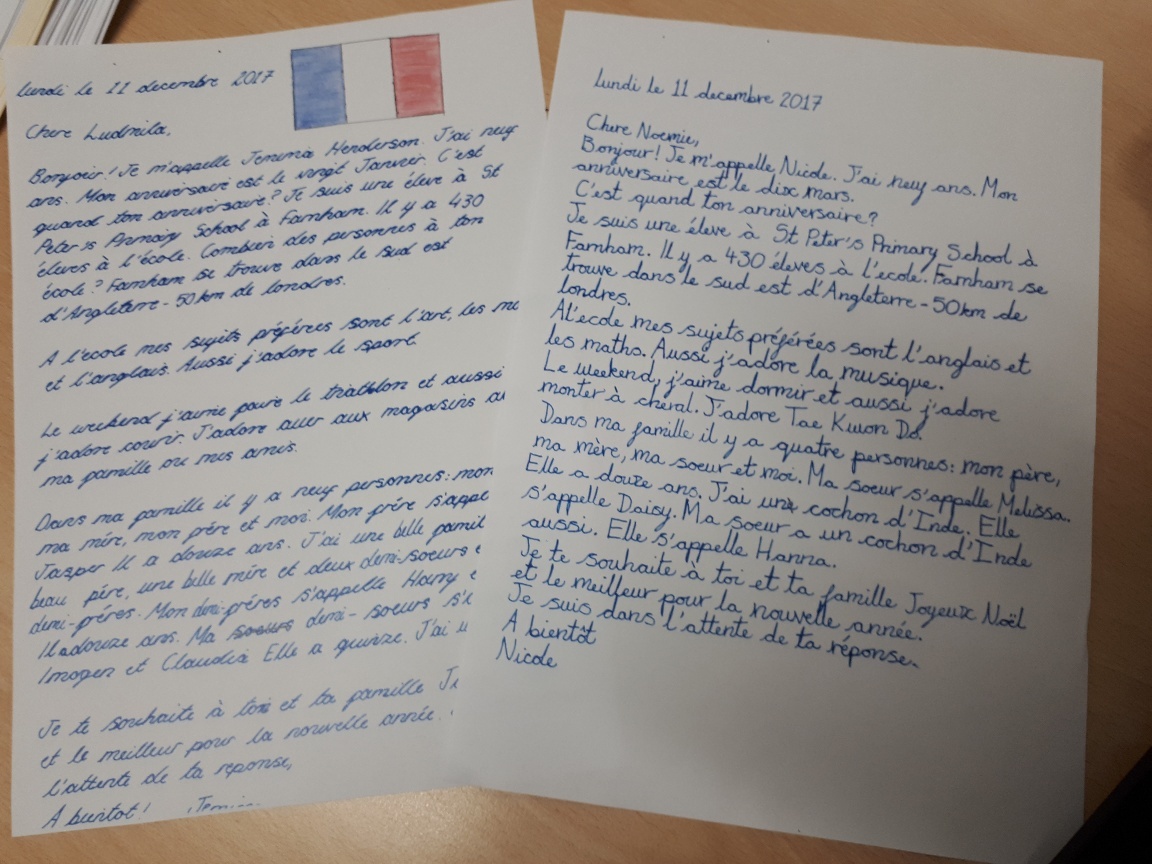 lundi le 11 decembre 2017
Chere Ludmila,
Bonjour! Je m'appelle Jemima Henderson. J'ai neuf
ans. Mon anniversaire est le vingt Janvier. C'est
quand ton anniversaire? Je suis une éleve à St
Peter's Primary School à Farnham. Il y a 430
éleves à l'école. Combien des personnes à ton
école? Farnham se trouve dans le sud est
d'Angleterre - 50km de londres.
A l'école mes sujets préférées sont l'art, les
et l'anglais. Aussi j'adore le sport.
Le weekend j'aime faire le triathlon et aussi
j'adore courir. J'adore aller aux magasins
ma famille ou mes amis.
Dans ma famille il y a neuf personnes: mon
ma mére, mon frére et moi. Mon frére s'appe
Jasper Il a douze ans. J'ai une belle famil
beau pére, une belle mére et deux demi-soeurs
demi-fréres. Mon demi-fréres s'appelle Harry
Il a douze ans. Ma soeurs demi-soeurs
Imogen et Claudia Elle a quinze. J'ai
Je te souhaite à toi et ta famille
et le meilleur pour la nouvelle année.
l'attente de ta reponse,
A bientot!
lundi le 11 decembre 2017
Chere Noemie,
Bonjour! Je m'appelle Nicole. J'ai neuf ans. Mon
anniversaire est le dix mars.
C'est quand ton anniversaire?
Je suis une éleve à St Peter's Primary School à
Farnham. Il y a 430 éleves à l'ecole. Farnham se
trouve dans le sud est d'Angleterre - 50km de
londres.
A l'ecole mes sujets préférées sont l'anglais et
les maths. Aussi j'adore la musique.
Le weekend, j'aime dormir et aussi j'adore
monter à cheral. J'adore Tae Kwon Do.
Dans ma famille il y a quatre personnes: mon père,
ma mère, ma soeur et moi. Ma soeur s'appelle Melissa.
Elle a douze ans. J'ai une cochon d'Inde. Elle
s'appelle Daisy. Ma soeur a un cochon d'Inde
aussi. Elle s'appelle Hanna.
Je te souhaite à toi et ta famille Joyeux Noël
et le meilleur pour la nouvelle année.
Je suis dans l'attente de ta réponse.
A bientôt
Nicole